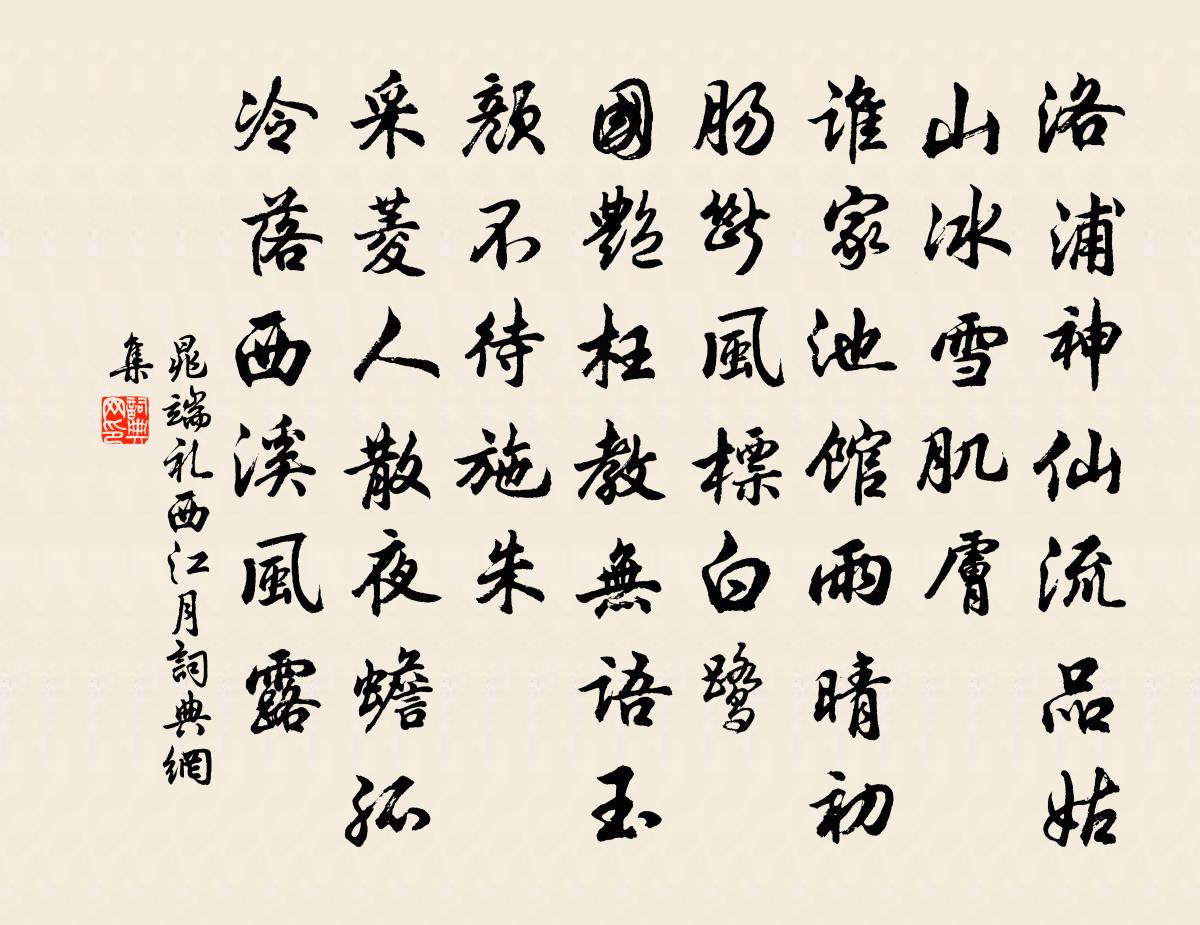 洛浦神仙流品姑
山冰雪肌膚
誰家池館雨晴初
腸斷風標白鷺
國艷枉教無語玉
顏不待施朱
采菱人散夜蟾孤
冷落西溪風露
晁端礼西江月詞典網
集
詞典
网印